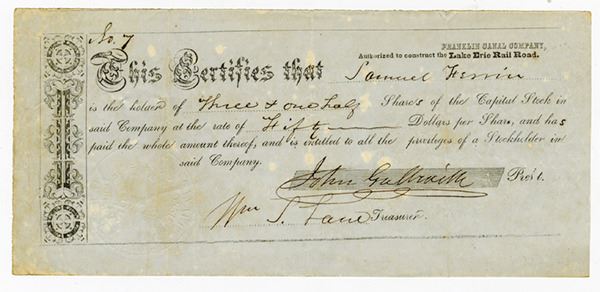 No. 7
FRANKLIN CANAL COMPANY,
Authorized to construct the Lake Erie Rail Road.
This Certifies that Samuel
is the holder of Three & one half Shares of the Capital Stock in
said Company at the rate of Fifty Dollars per Share, and has
paid the whole amount thereof, and is entitled to all the privileges of a Stockholder in
said Company.
John Galbraith Pres't.
Wm S. Lane Treasurer.